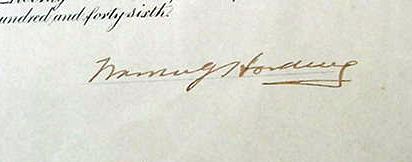 hundred and forty sixth.
Warren G Harding